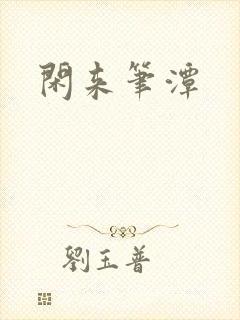 閑来筆潭
劉玉普